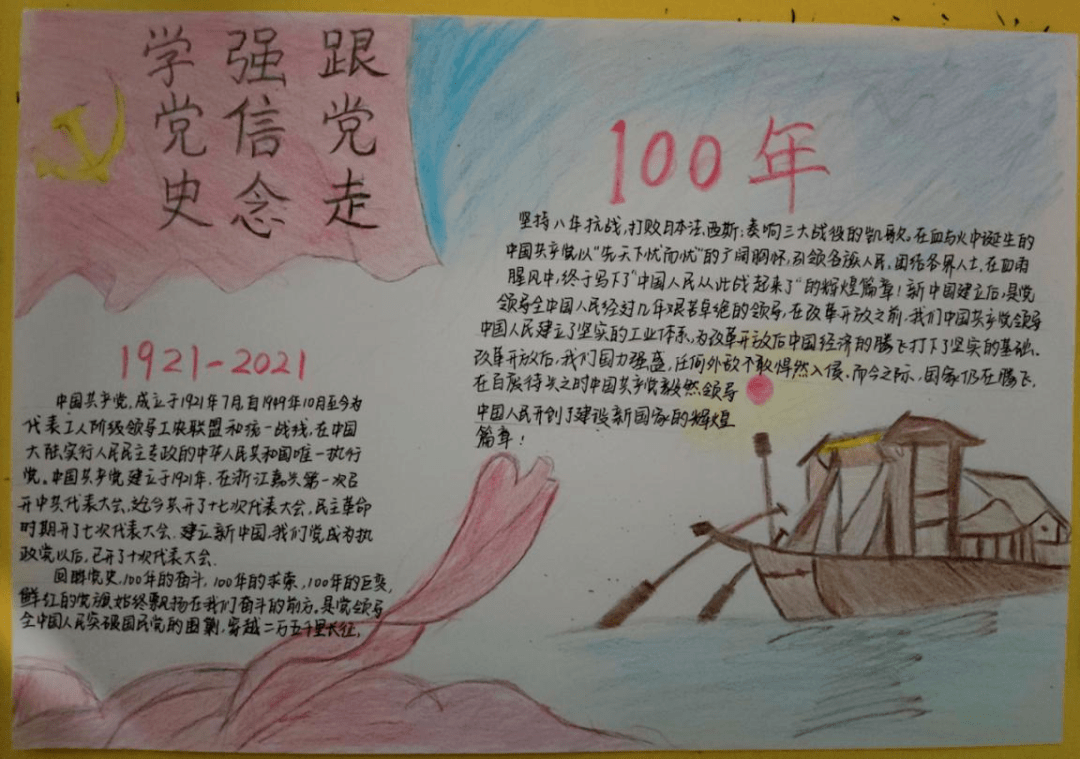 学党史
强信念
跟党走
1921-2021
中国共产党,成立于1921年7月,自1949年10月至今为
代表工人阶级领导工农联盟和统一战线,在中国
大陆实行人民民主专政的中华人民共和国唯一执行
党。中国共产党建立于1921年,在浙江嘉兴第一次召
开中共代表大会,迄今共开了十七次代表大会,民主革命
时期开了七次代表大会.建立新中国,我们党成为执
政党以后,已开了十次代表大会.
回眸党史,100年的奋斗,100年的求索,100年的巨变,
鲜红的党旗始终飘扬在我们奋斗的前方。是党领导
全中国人民突破国民党的围剿,穿越二万五千里长征,
100年
坚持八年抗战,打败日本法西斯;奏响三大战役的凯歌。在血与火中诞生的
中国共产党以“先天下忧而忧”的广阔胸怀,引领各族人民,团结各界人士,在血雨
腥风中,终于写下了“中国人民从此战起来了”的辉煌篇章!新中国建立后,是党
领导全中国人民经过几年艰苦卓绝的领导,在改革开放之前,我们中国共产党领导
中国人民建立了坚实的工业体系,为改革开放后中国经济的腾飞打下了坚实的基础。
改革开放后,我们国力强盛,任何外敌不敢悍然入侵.而今之际,国家仍在腾飞,
在百废待兴之时中国共产党毅然领导
中国人民开创了建设新国家的辉煌
篇章!